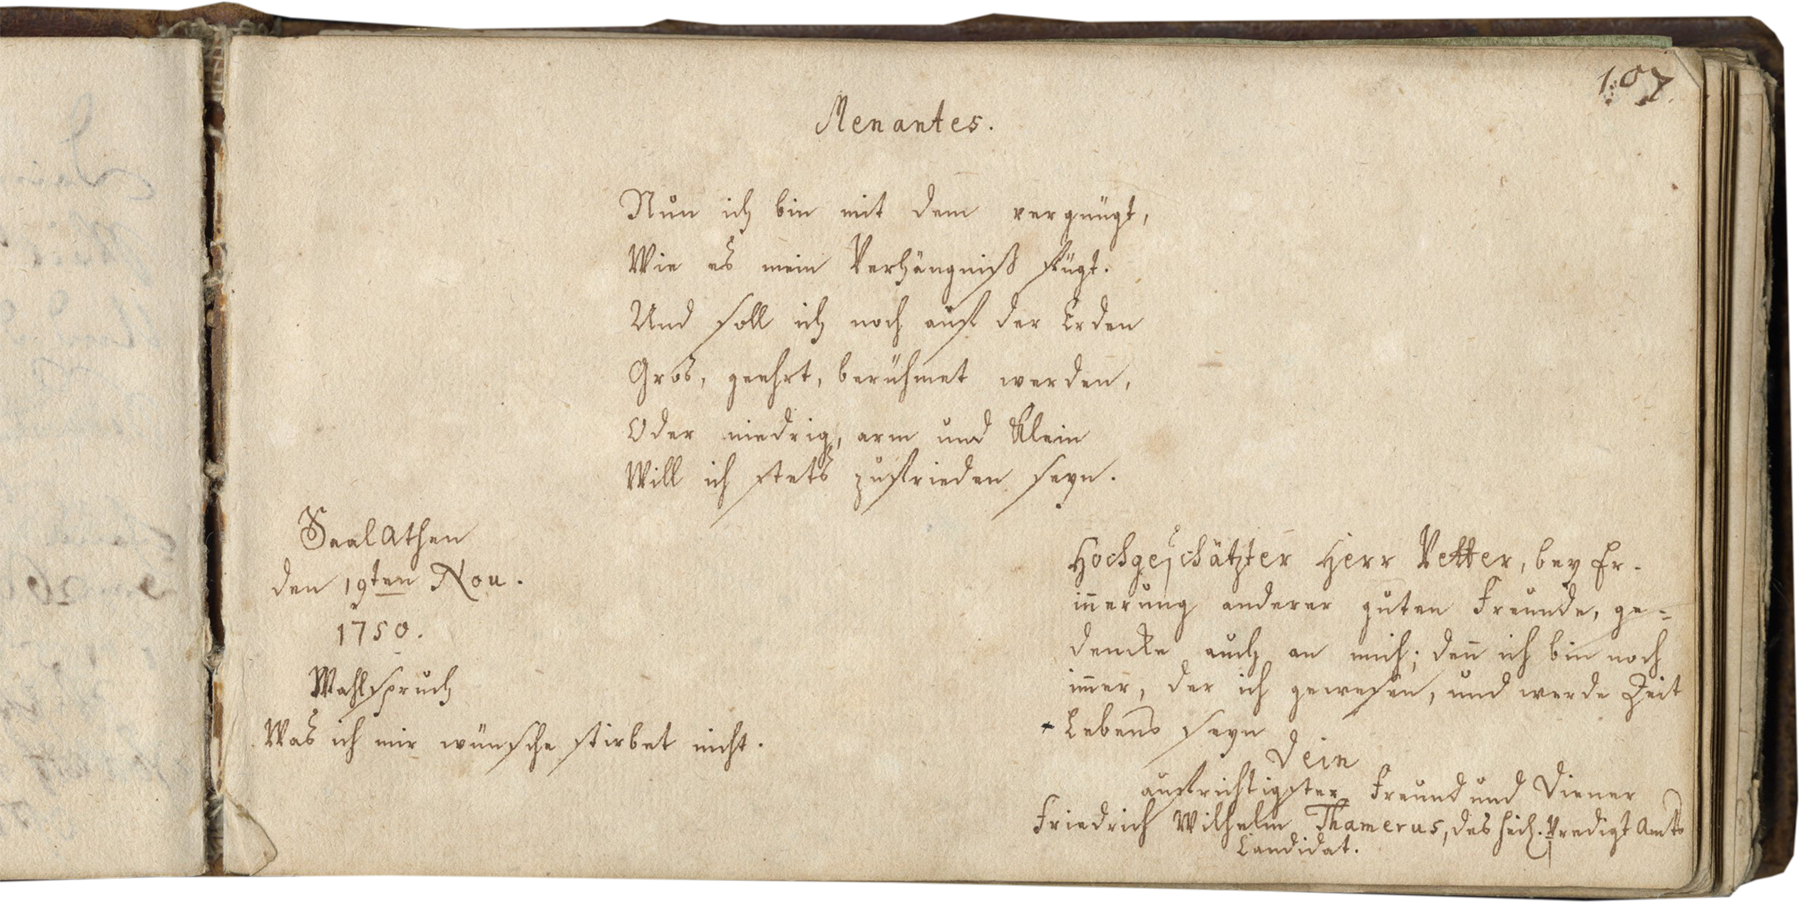 107.
Menantes.
Nun ich bin mit dem vergnügt,
Wie es mein Verhängniß fügt.
Und soll ich noch auf der Erden
Gros, geehrt, berühmet werden,
Oder niedrig, arm und klein
Will ich stets zufrieden seyn.
SaalAthen
den 19ten Nov.
1750.
Wahlspruch
Was ich mir wünsche stirbet nicht.
Hochgeschätzter Herr Vetter, bey Er-
in̄erung anderer guten Freunde, ge-
dencke auch an mich; den̄ ich bin noch
im̄er, der ich gewesen, und werde Zeit
Lebens seyn
Dein
aufrichtigster Freund und Diener
Friedrich Wilhelm Thamerus, des heil. Predigt Amts
Candidat.